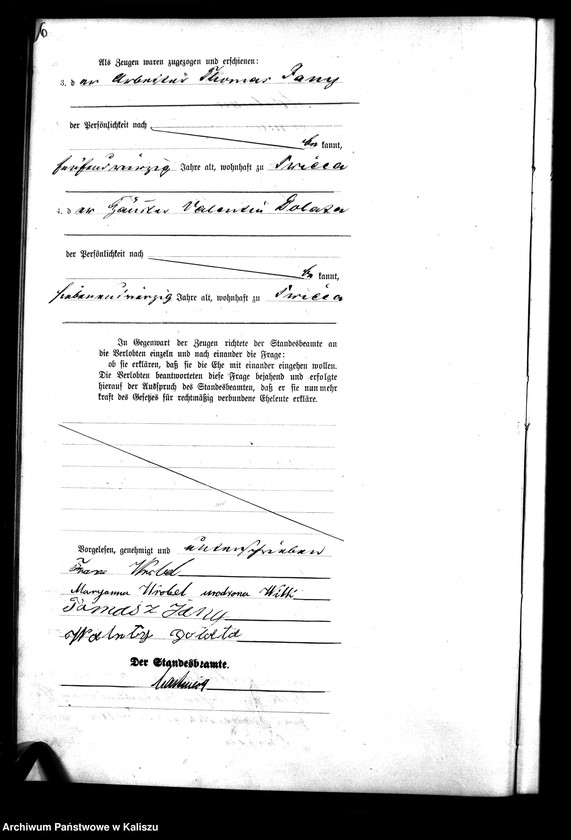 6
Als Zeugen waren zugezogen und erschienen:
3. der Arbeiter Thomas Jany
der Persönlichkeit nach
bekannt,
fünfundvierzig Jahre alt, wohnhaft zu Swieca
4. der Häusler Valentin Dolata
der Persönlichkeit nach
bekannt,
siebenundvierzig Jahre alt, wohnhaft zu Swieca
In Gegenwart der Zeugen richtete der Standesbeamte an
die Verlobten einzeln und nach einander die Frage:
ob sie erklären, daß sie die Ehe mit einander eingehen wollen.
Die Verlobten beantworteten diese Frage bejahend und erfolgte
hierauf der Ausspruch des Standesbeamten, daß er sie nunmehr
kraft des Gesetzes für rechtmäßig verbundene Eheleute erkläre.
Vorgelesen, genehmigt und unterschrieben
Franz Wrobel
Maryanna Wrobel urodzona
Tomasz Jany
Walenty Dolata
Der Standesbeamte.
Archiwum Państwowe w Kaliszu